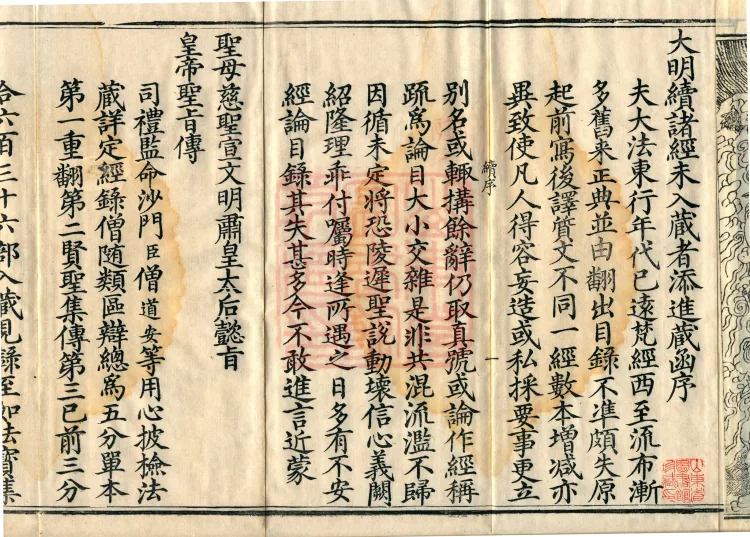 大明續諸經未入藏者添進藏函序
夫大法東行年代已遠梵經西至流布漸
多舊来正典並由翻出目錄不準頗失原
起前寫後譯質文不同一經數本增减亦
異致使凡人得容妄造或私採要事更立
續序
一
別名或輙搆餘辭仍取真號或論作經稱
䟽爲論目大小交雜是非共混流濫不歸
因循未定將恐陵遲聖說動壞信心義闕
紹隆理乖付囑時逢所遇之日多有不安
經論目錄其失甚多今不敢進言近蒙
聖母慈聖宣文明肅皇太后懿旨
皇帝聖旨傳
司禮監命沙門臣僧道安等用心披檢法
藏詳定經錄僧随類區辯總爲五分單本
第一重翻第二賢聖集傳第三已前三分
合六百三十六部入藏見錄至如法寳集